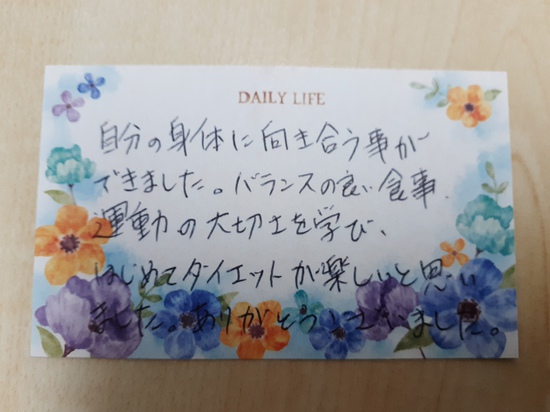 DAILY LIFE
自分の身体に向き合う事が
できました。バランスの良い食事、
運動の大切さを学び、
はじめてダイエットが楽しいと思い
ました。ありがとうございました。